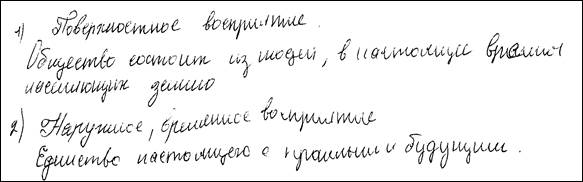 1) Поверхностное восприятие.
Общество состоит из людей, в настоящее время
населяющих землю
2) Наружное, временное восприятие
Единство настоящего с прошлым и будущим.